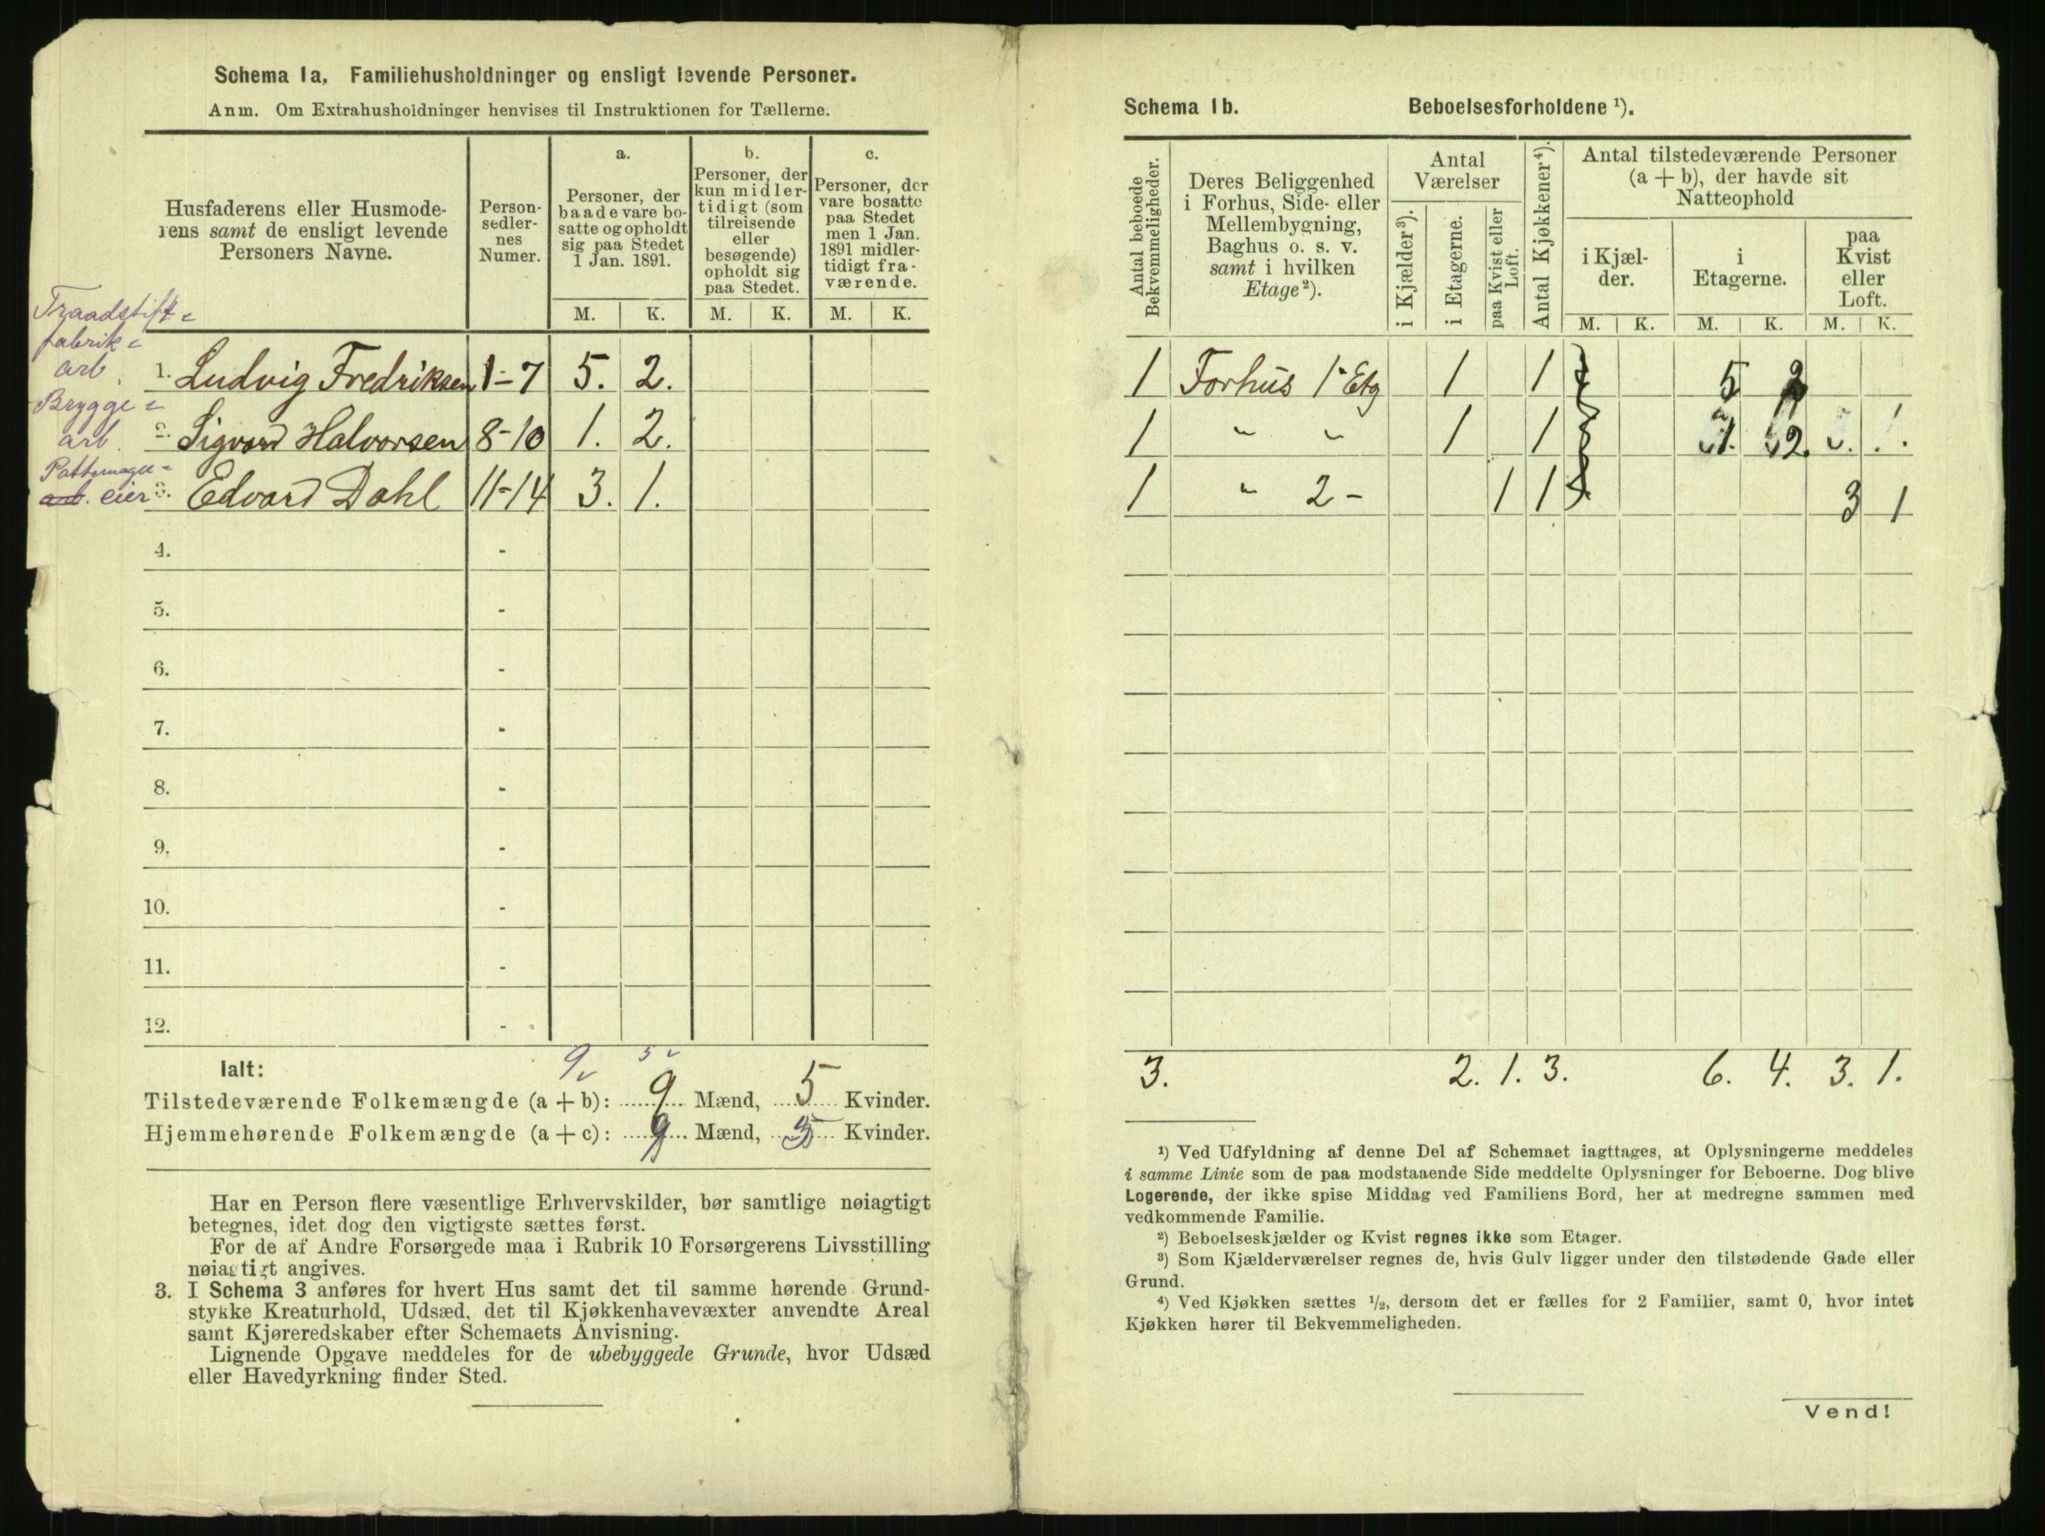 Schema 1a, Familiehusholdninger og ensligt levende Personer.
Anm. Om Extrahusholdninger henvises til Instruktionen for Tællerne.
Husfaderens eller Husmode-
rens samt de ensligt levende
Personers Navne.
Person-
sedler-
nes
Numer.
a.
Personer, der
baade vare bo-
satte og opholdt
sig paa Stedet
1 Jan. 1891.
b.
Personer, der
kun midler-
tidigt (som
tilreisende
eller
besøgende)
opholdt sig
paa Stedet.
c.
Personer, der
vare bosatte
paa Stedet
men 1 Jan.
1891 midler-
tidigt fra-
værende.
M. K. M. K. M. K.
Traadstift-
fabrik-
arb.
1. Ludvig Fredriksen 1-7 5. 2.
Brygge-
arb.
2. Sigvard Halvorsen 8-10 1. 2.
eier
3. Edvard Dahl 11-14 3. 1.
4. -
5. -
6. -
7. -
8. -
9. -
10. -
11. -
12. -
Ialt:
9 5
Tilstedeværende Folkemængde (a + b): 9 Mænd, 5 Kvinder.
Hjemmehørende Folkemængde (a + c): 9 Mænd, 5 Kvinder.
Har en Person flere væsentlige Erhvervskilder, bør samtlige nøiagtigt
betegnes, idet dog den vigtigste sættes først.
For de af Andre Forsørgede maa i Rubrik 10 Forsørgerens Livsstilling
nøiagtigt angives.
3. I Schema 3 anføres for hvert Hus samt det til samme hørende Grund-
stykke Kreaturhold, Udsæd, det til Kjøkkenhavevæxter anvendte Areal
samt Kjøreredskaber efter Schemaets Anvisning.
Lignende Opgave meddeles for de ubebyggede Grunde, hvor Udsæd
eller Havedyrkning finder Sted.
Schema 1b. Beboelsesforholdene ¹).
Antal beboede
Bekvemmeligheder.
Deres Beliggenhed
i Forhus, Side- eller
Mellembygning,
Baghus o. s. v.
samt i hvilken
Etage ²).
Antal
Værelser
i Kjælder ³).
i Etagerne.
paa Kvist eller
Loft.
Antal Kjøkkener ⁴).
Antal tilstedeværende Personer
(a + b), der havde sit
Natteophold
i Kjæl-
der.
i
Etagerne.
paa
Kvist
eller
Loft.
M. K. M. K. M. K.
1 Forhus 1 Etg 1 1 5 2
1 " " 1 1 1. 2.
1 " 2 - 1 1 3 1
3. 2. 1. 3. 6. 4. 3. 1.
¹) Ved Udfyldning af denne Del af Schemaet iagttages, at Oplysningerne meddeles
i samme Linie som de paa modstaaende Side meddelte Oplysninger for Beboerne. Dog blive
Logerende, der ikke spise Middag ved Familiens Bord, her at medregne sammen med
vedkommende Familie.
²) Beboelseskjælder og Kvist regnes ikke som Etager.
³) Som Kjælderværelser regnes de, hvis Gulv ligger under den tilstødende Gade eller
Grund.
⁴) Ved Kjøkken sættes ½, dersom det er fælles for 2 Familier, samt 0, hvor intet
Kjøkken hører til Bekvemmeligheden.
Vend!